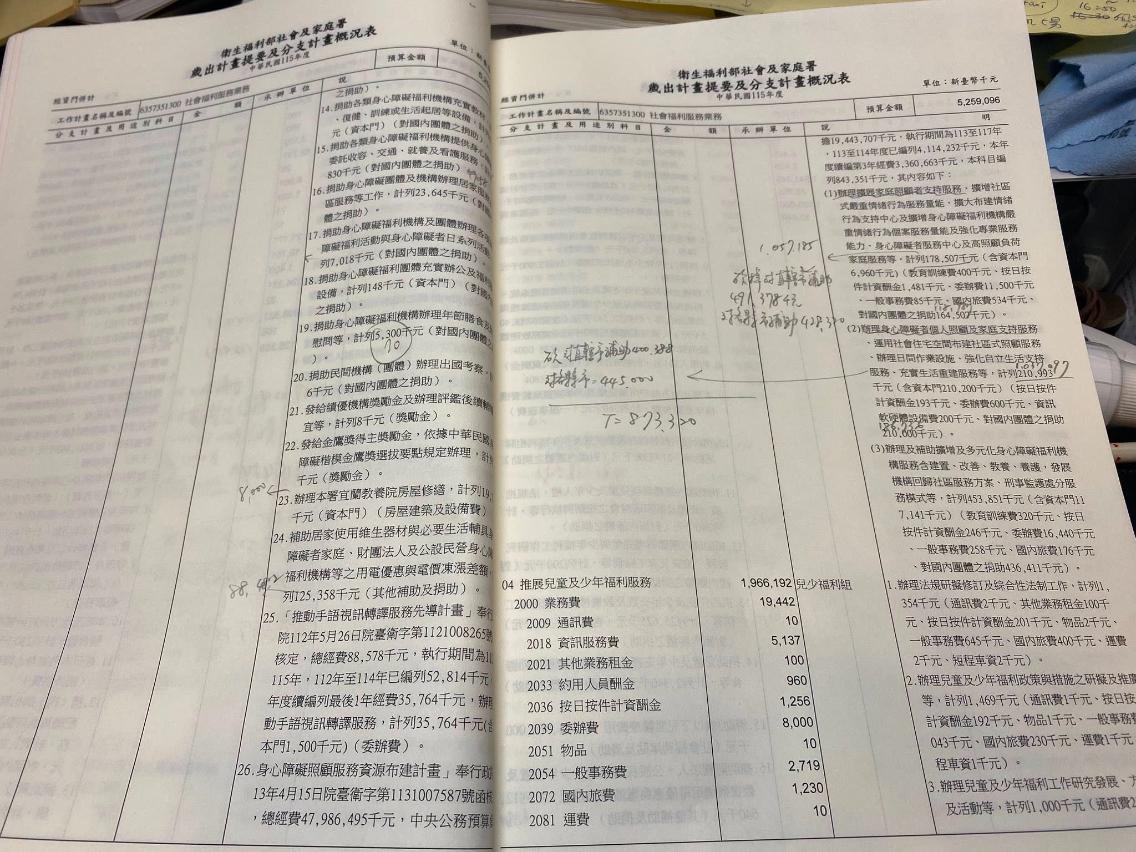 衛生福利部社會及家庭署
歲出計畫提要及分支計畫概況表
中華民國115年度
經資門併計
單位：新臺
工作計畫名稱及編號 6357351300 社會福利服務業務
預算金額
分支計畫及用途別科目 金 額 承辦單位 說
之捐助）。
14.捐助各類身心障礙福利機構充實教
、復健、訓練或生活起居等設備，計
元（資本門）（對國內團體之捐助）
15.捐助各類身心障礙福利機構提供身心
委託收容、交通、就養及看護服務
830千元（對國內團體之捐助）
16.捐助身心障礙團體及機構辦理居家
區服務等工作，計列23,645千元（對
之捐助）。
17.捐助身心障礙福利機構及團體辦理各
障礙福利活動與身心障礙者日系列活動
列7,018千元（對國內團體之捐助）。
18.捐助身心障礙福利團體充實辦公及福利
設備，計列148千元（資本門）（對國
之捐助）。
19.捐助身心障礙福利機構辦理年節膳食及
慰問等，計列5,300千元（對國內團體之
）。
70
20.捐助民間機構（團體）辦理出國考察
6千元（對國內團體之捐助）。
21.發給績優機構獎勵金及辦理評鑑後續輔
宜等，計列8千元（獎勵金）。
22.發給金鷹獎得主獎勵金，依據中華民國
障礙楷模金鷹獎選拔要點規定辦理，計
千元（獎勵金）。
8,000
23.辦理本署宜蘭教養院房屋修繕，計列19,
千元（資本門）（房屋建築及設備費）
24.補助居家使用維生器材與必要生活輔具
障礙者家庭、財團法人及公設民營身心
福利機構等之用電優惠與電價凍漲差額
列125,358千元（其他補助及捐助）。
25.「推動手語視訊轉譯服務先導計畫」奉行
院112年5月26日院臺衛字第1121008265號
核定，總經費88,578千元，執行期間為1
115年，112年至114年已編列52,814千元
年度續編列最後1年經費35,764千元，辦
動手語視訊轉譯服務，計列35,764千元(
本門1,500千元)（委辦費）。
26.身心障礙照顧服務資源布建計畫」奉行政
13年4月15日院臺衛字第1131007587號函
，總經費47,986,495千元，中央公務預算
衛生福利部社會及家庭署
歲出計畫提要及分支計畫概況表
中華民國115年度
經資門併計
單位：新臺幣千元
工作計畫名稱及編號 6357351300 社會福利服務業務
預算金額 5,259,096
分支計畫及用途別科目 金 額 承辦單位 說 明
擔19,443,707千元，執行期間為113至117年
，113至114年度已編列4,114,232千元，本年
度續編第3年經費3,360,663千元，本科目編
列843,351千元，其內容如下：
(1)辦理擴展家庭照顧者支持服務，擴增社區
式嚴重情緒行為服務量能，擴大布建情緒
行為支持中心及擴增身心障礙福利機構嚴
重情緒行為個案服務量能及強化專業服務
能力、身心障礙者服務中心及高照顧負荷
家庭服務等，計列178,507千元（含資本門
6,960千元）（教育訓練費400千元，按日按
件計資酬金1,481千元，委辦費11,500千元
、一般事務費85千元，國內旅費534千元、
對國內團體之捐助164,507千元）。
1,057,185
(2)辦理身心障礙者個人照顧及家庭支持服務
、運用社會住宅空間布建社區式照顧服務
、辦理日間作業設施、強化自立生活支持
服務、充實生活重建服務等，計列210,993
千元（含資本門210,200千元）（按日按件
計資酬金193千元、委辦費600千元、資訊
軟硬體設備費200千元、對國內團體之捐助
210,000千元）。
T=873,320
(3)辦理及補助擴增及多元化身心障礙福利機
構服務含建置、改善、教養、養護，發展
機構回歸社區服務方案、刑事監護處分服
務模式等，計列453,851千元（含資本門11
7,141千元）（教育訓練費320千元、按日
按件計資酬金246千元、委辦費16,440千元
、一般事務費258千元、國內旅費176千元
、對國內團體之捐助436,411千元）。
04 推展兒童及少年福利服務 1,966,192 兒少福利組
2000 業務費 19,442
2009 通訊費 10
2018 資訊服務費 5,137
2021 其他業務租金 100
2033 約用人員酬金 960
2036 按日按件計資酬金 1,256
2039 委辦費 8,000
2051 物品 10
2054 一般事務費 2,719
2072 國內旅費 1,230
2081 運費 10
1.辦理法規研擬修訂及綜合性法制工作，計列1,
354千元（通訊費2千元、其他業務租金100千
元、按日按件計資酬金201千元、物品2千元、
一般事務費645千元、國內旅費400千元、運費
2千元、短程車資2千元）。
2.辦理兒童及少年福利政策與措施之研擬及推
等，計列1,469千元（通訊費1千元、按日按
計資酬金192千元、物品1千元、一般事務費
043千元、國內旅費230千元、運費1千元
程車資1千元）。
3.辦理兒童及少年福利工作研究發展、
及活動等，計列1,000千元（通訊費2